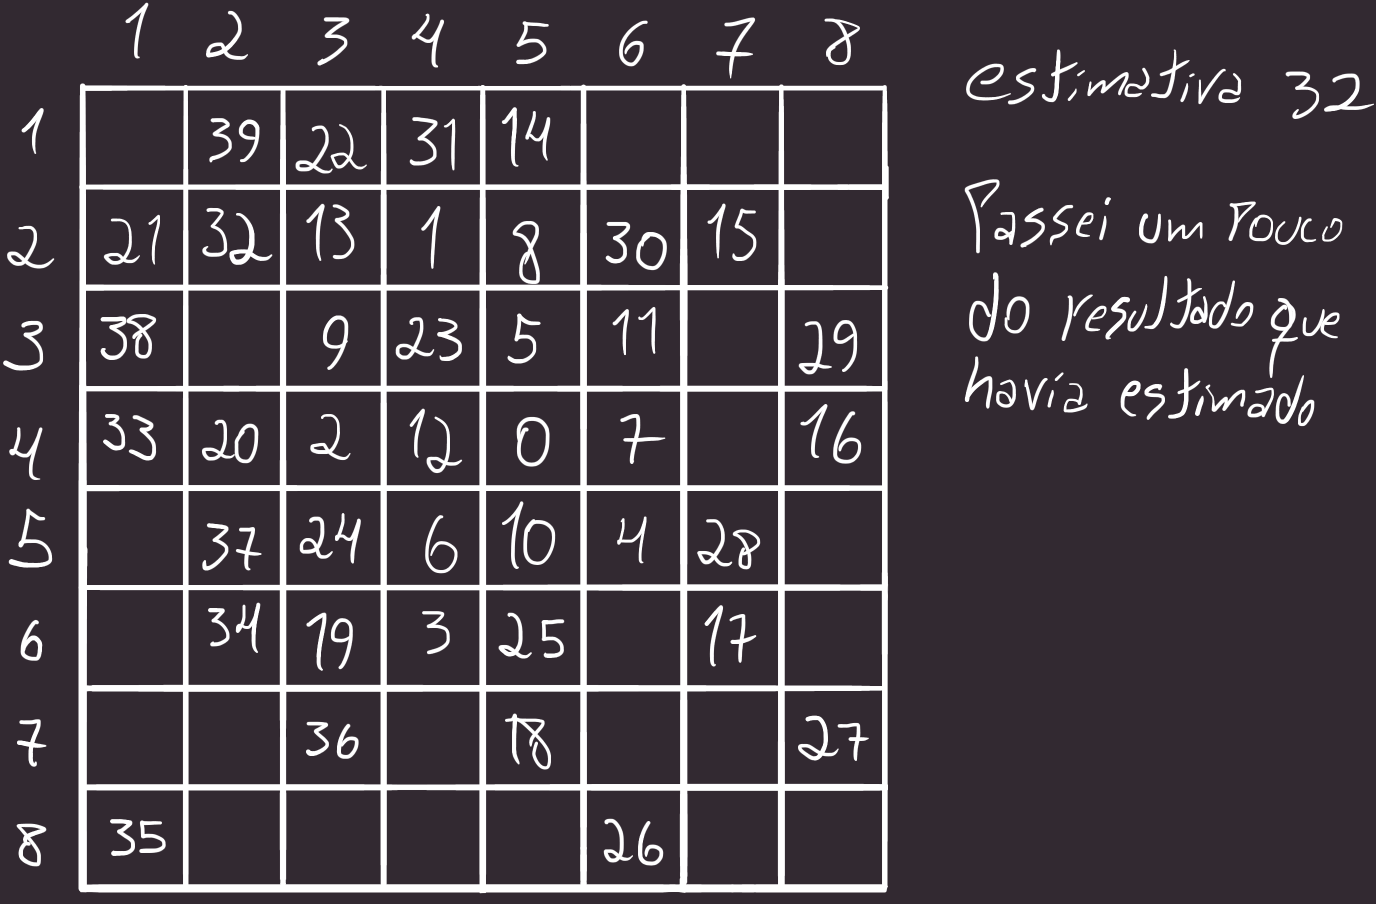 1 2 3 4 5 6 7 8
1 39 22 31 14
2 21 32 13 1 8 30 15
3 38 9 23 5 11 29
4 33 20 2 12 0 7 16
5 37 24 6 10 4 28
6 34 19 3 25 17
7 36 18 27
8 35 26
estimativa 32
Passei um Pouco
do resultado que
havia estimado